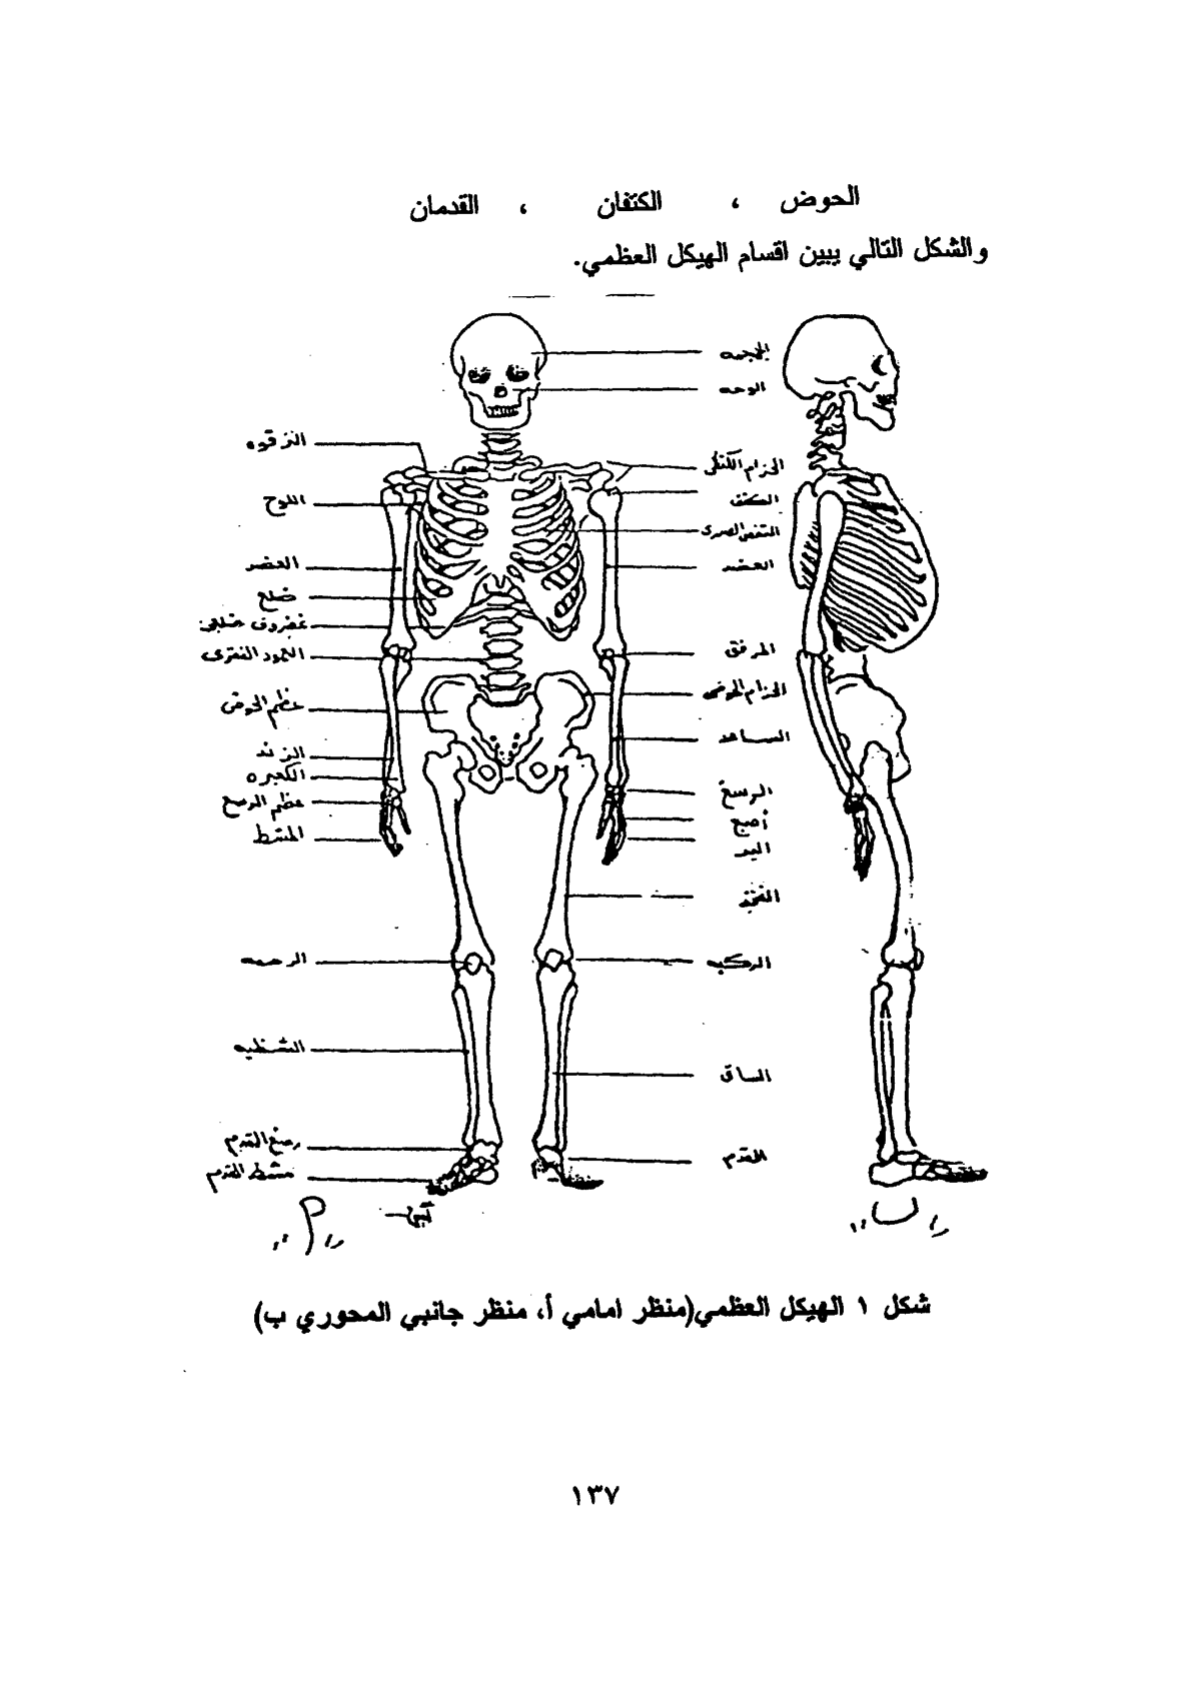 الحوض ، الكتفان ، القدمان
والشكل التالي يبين اقسام الهيكل العظمي.
الجمجمه
الوجه
الحزام الكتفى
الكتف
القفص الصدرى
العضد
المرفق
الحزام الحوضى
الساعد
الرسغ
أصبع
اليد
الفخذ
الركبه
الساق
القدم
الترقوه
اللوح
العضد
ضلع
غضروف ضلعى
العمود الفقرى
عظم الحوض
الزند
الكعبره
عظم الرسغ
المشط
الرضفه
الشظيه
رسغ القدم
مشط القدم
شكل ١ الهيكل العظمي(منظر امامي أ، منظر جانبي المحوري ب)
١٣٧